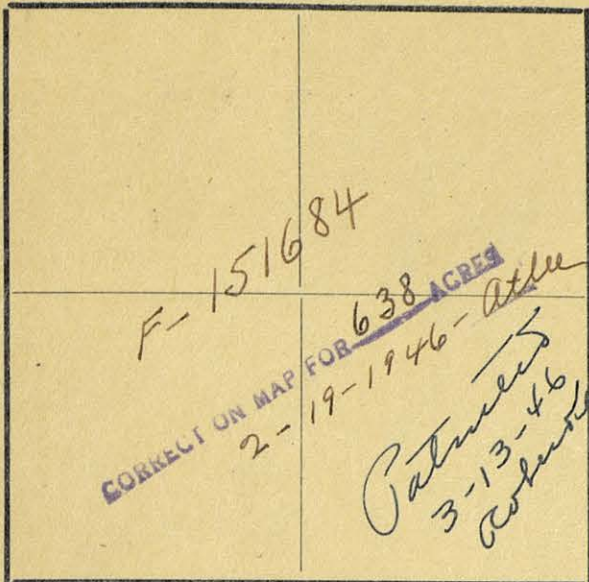 F-151684
CORRECT ON MAP FOR 638 ACRES
2-19-1946- Atlee
Patented
3-13-46